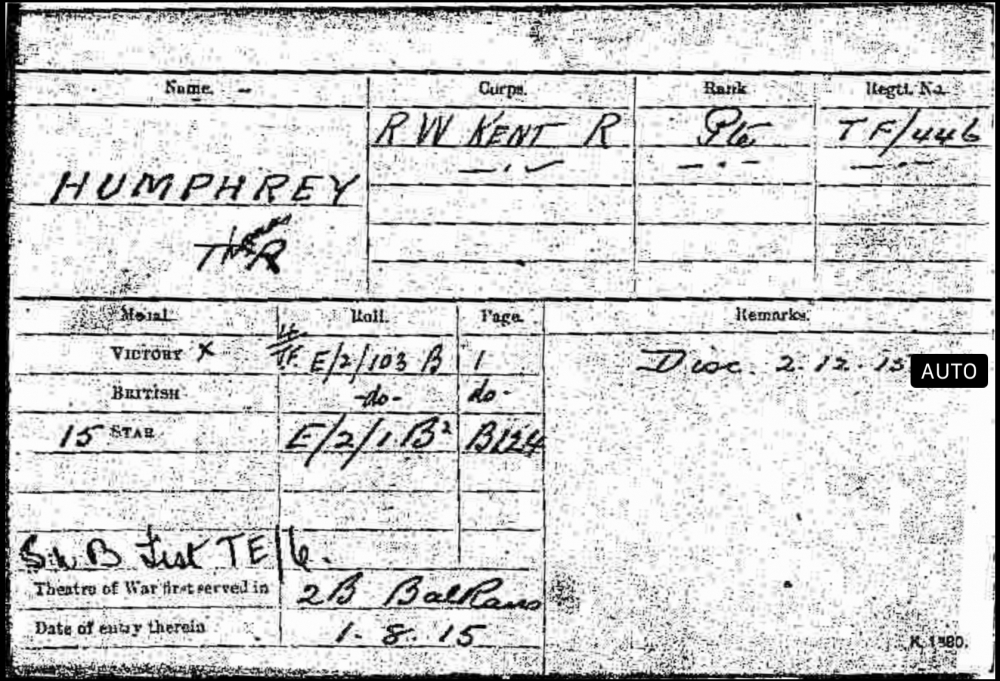 Name. Corps. Rank Regtl. No.
R W KENT R Pte TF/446
HUMPHREY
Medal. Roll. Page. Remarks.
VICTORY X TF. E/2/103 B 1 Disc. 2.12.15
AUTO
BRITISH -do- do-
15 STAR E/2/1 B² B124
S.W.B List TE/6.
Theatre of War first served in 2B Balkans
Date of entry therein 1.8.15
K. 1380.